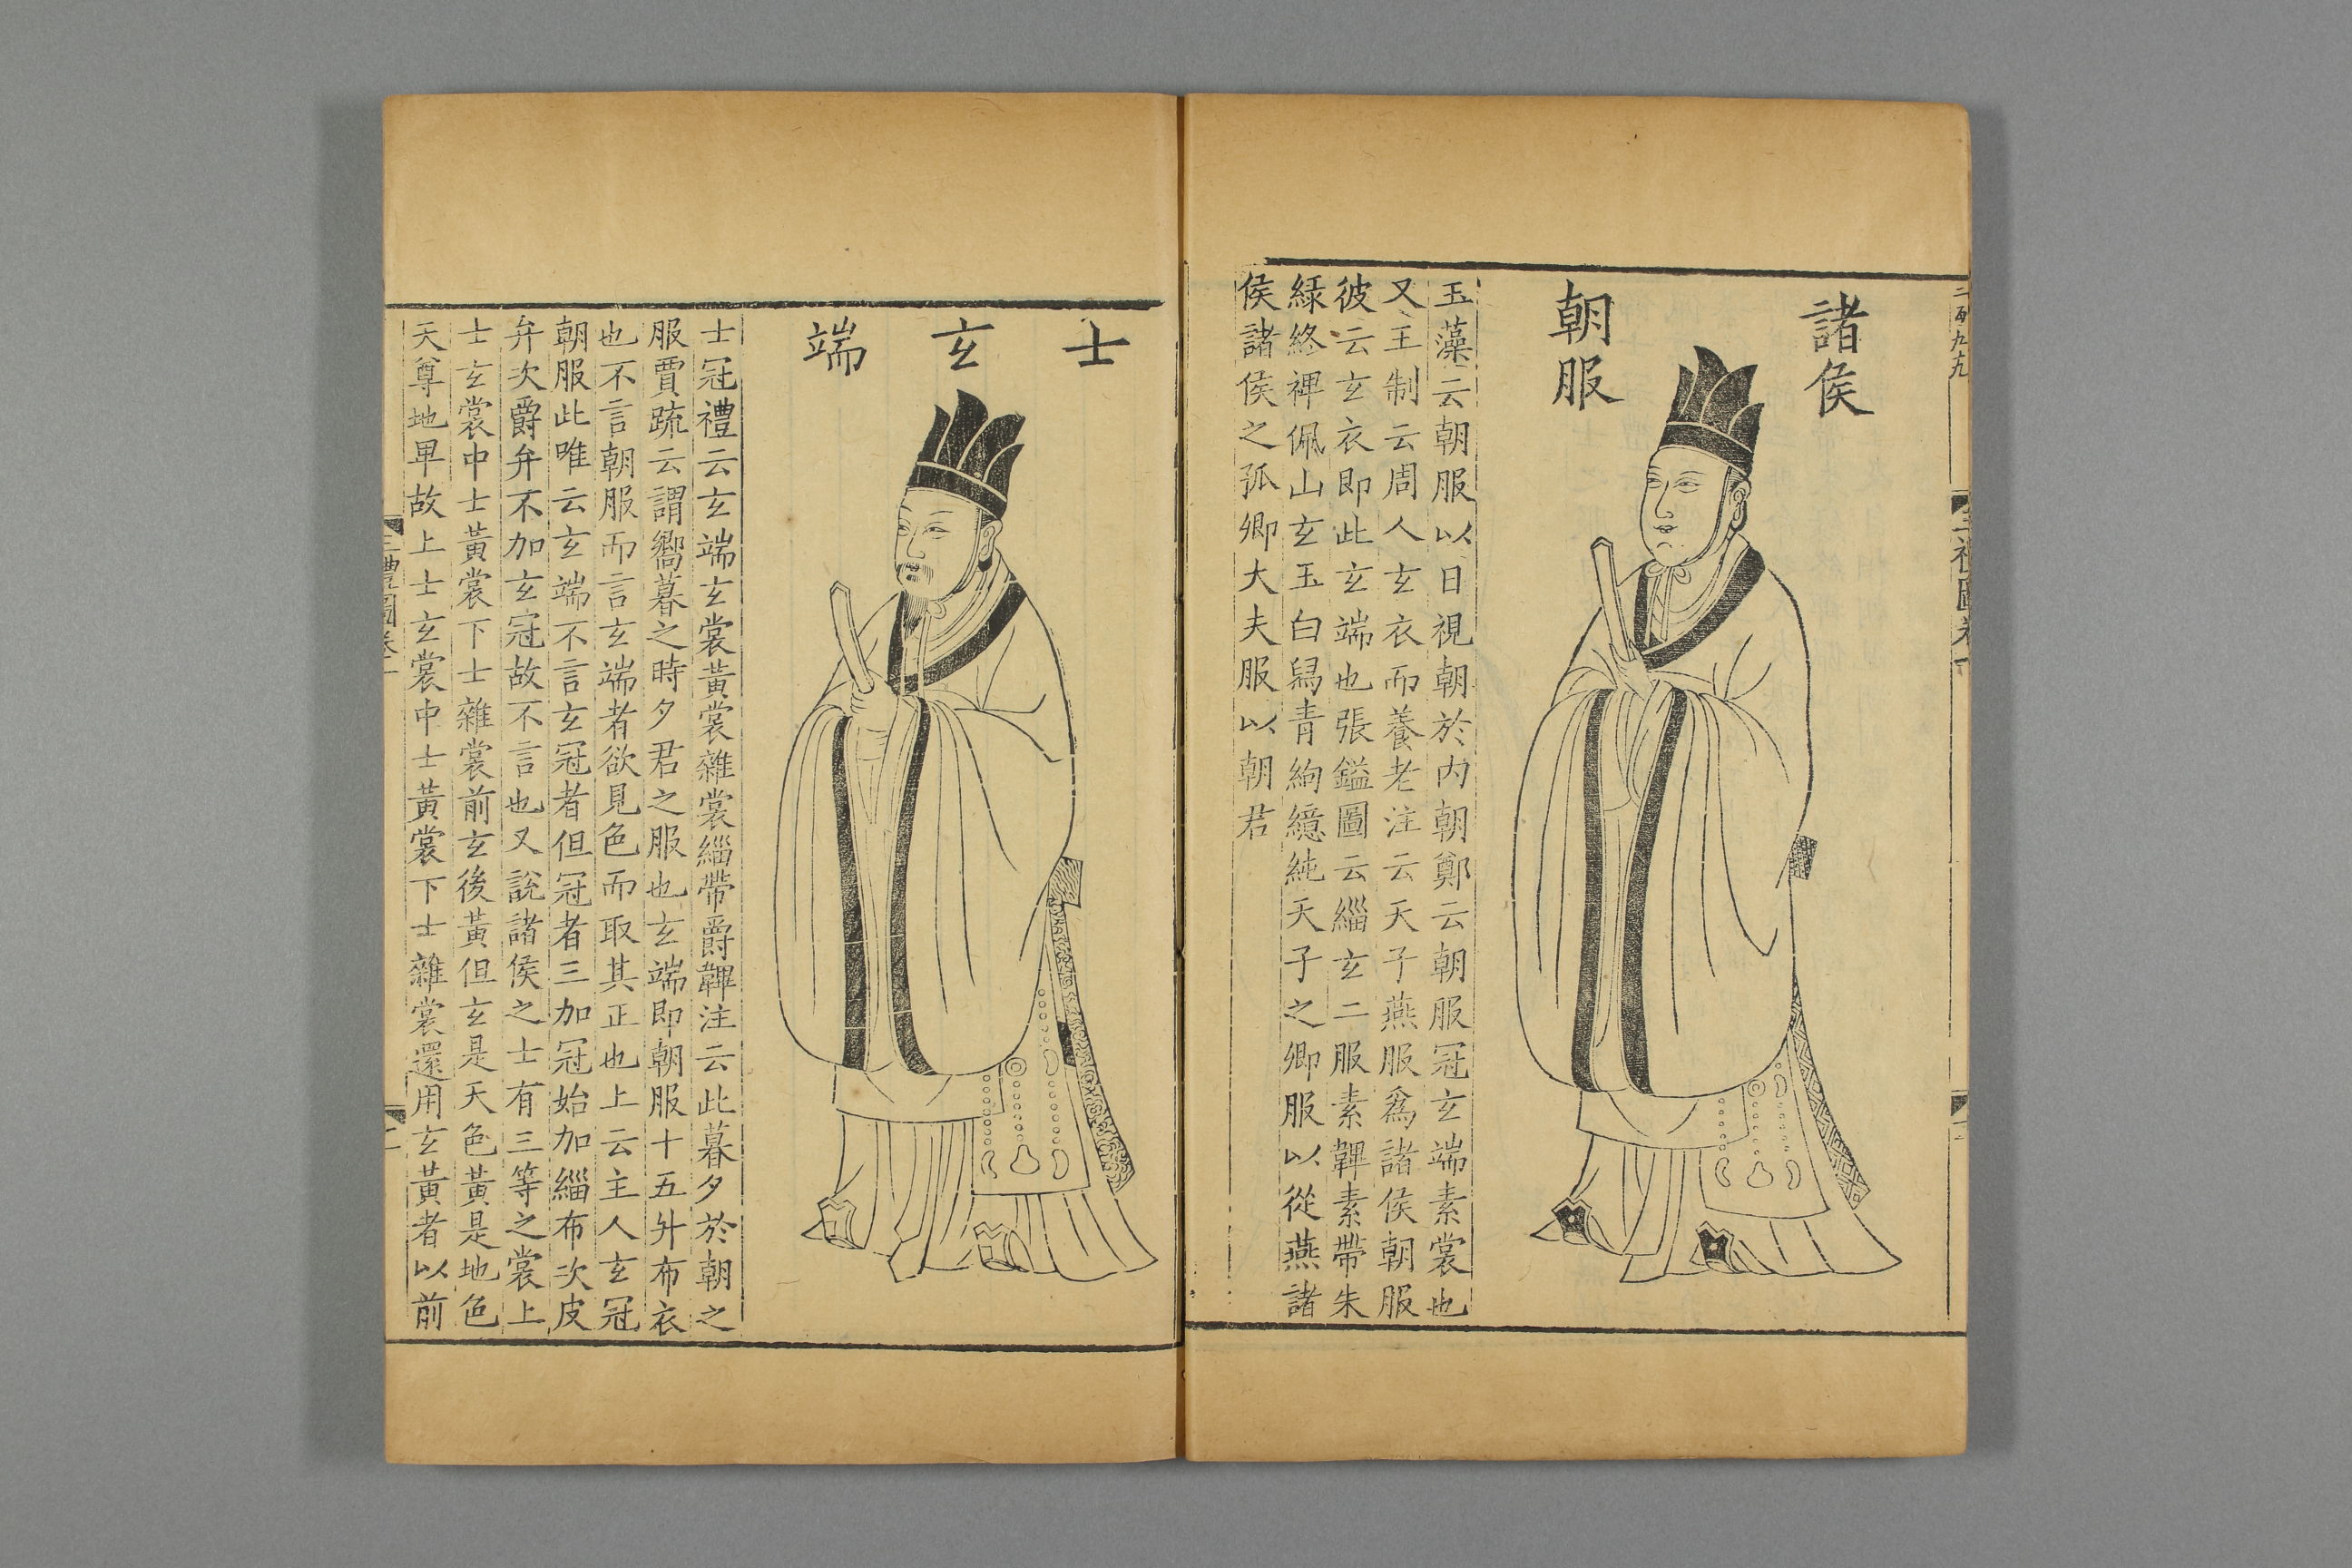 諸侯
朝服
玉藻云朝服以日視朝於内朝鄭云朝服冠玄端素裳也
又王制云周人玄衣而養老注云天子燕服爲諸侯朝服
彼云玄衣即此玄端也張鎰圖云緇玄二服素韠素帶朱
緑終裨佩山玄玉白舄青絇繶純天子之卿服以從燕諸
侯諸侯之孤卿大夫服以朝君
士玄端
士冠禮云玄端玄裳黃裳雜裳緇帶爵韠注云此暮夕於朝之
服賈疏云謂嚮暮之時夕君之服也玄端即朝服十五升布衣
也不言朝服而言玄端者欲見色而取其正也上云主人玄冠
朝服此唯云玄端不言玄冠者但冠者三加冠始加緇布次皮
弁次爵弁不加玄冠故不言也又說諸侯之士有三等之裳上
士玄裳中士黃裳下士雜裳前玄後黃但玄是天色黃是地色
天尊地卑故上士玄裳中士黃裳下士雜裳還用玄黃者以前
三禮圖卷